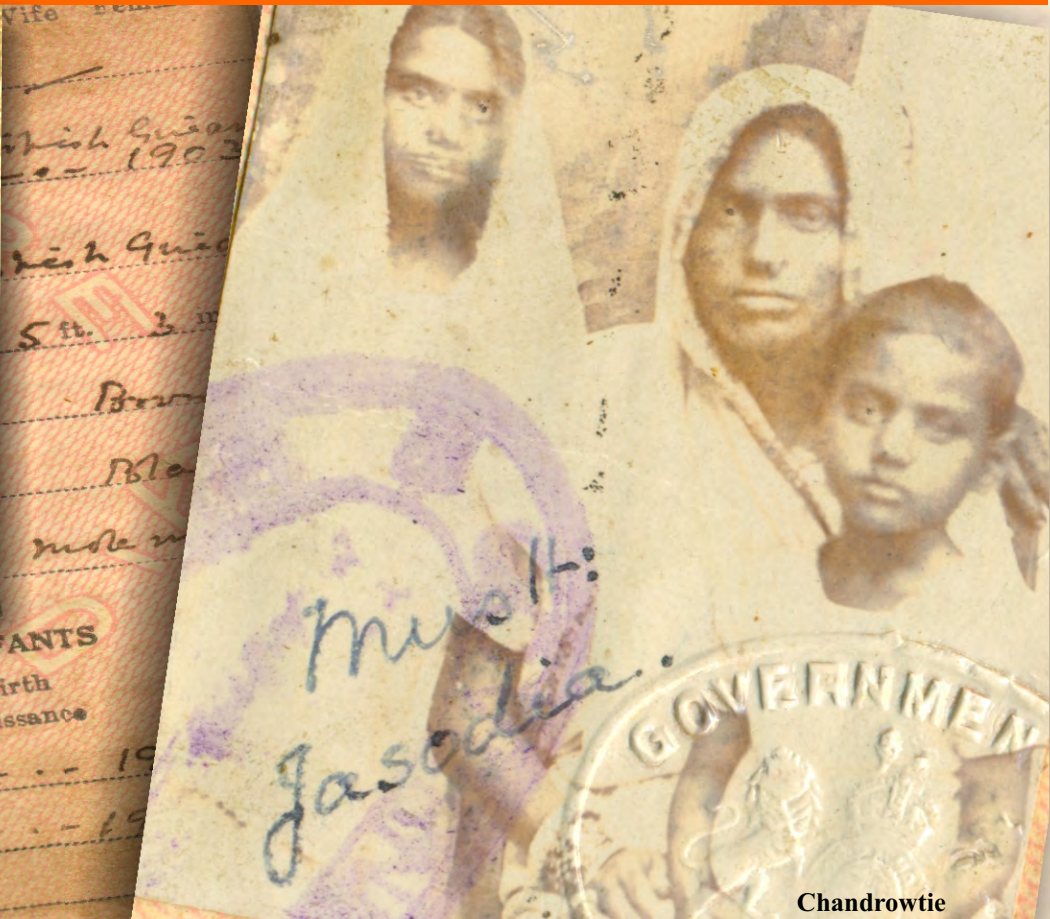 Wife
British Guian
- 1903
British Guia
5 ft. 3 in
Brow
Bla
mole
FANTS
irth
issance
19
19
Musst:
Jasodia.
GOVERNMEN
Chandrowtie